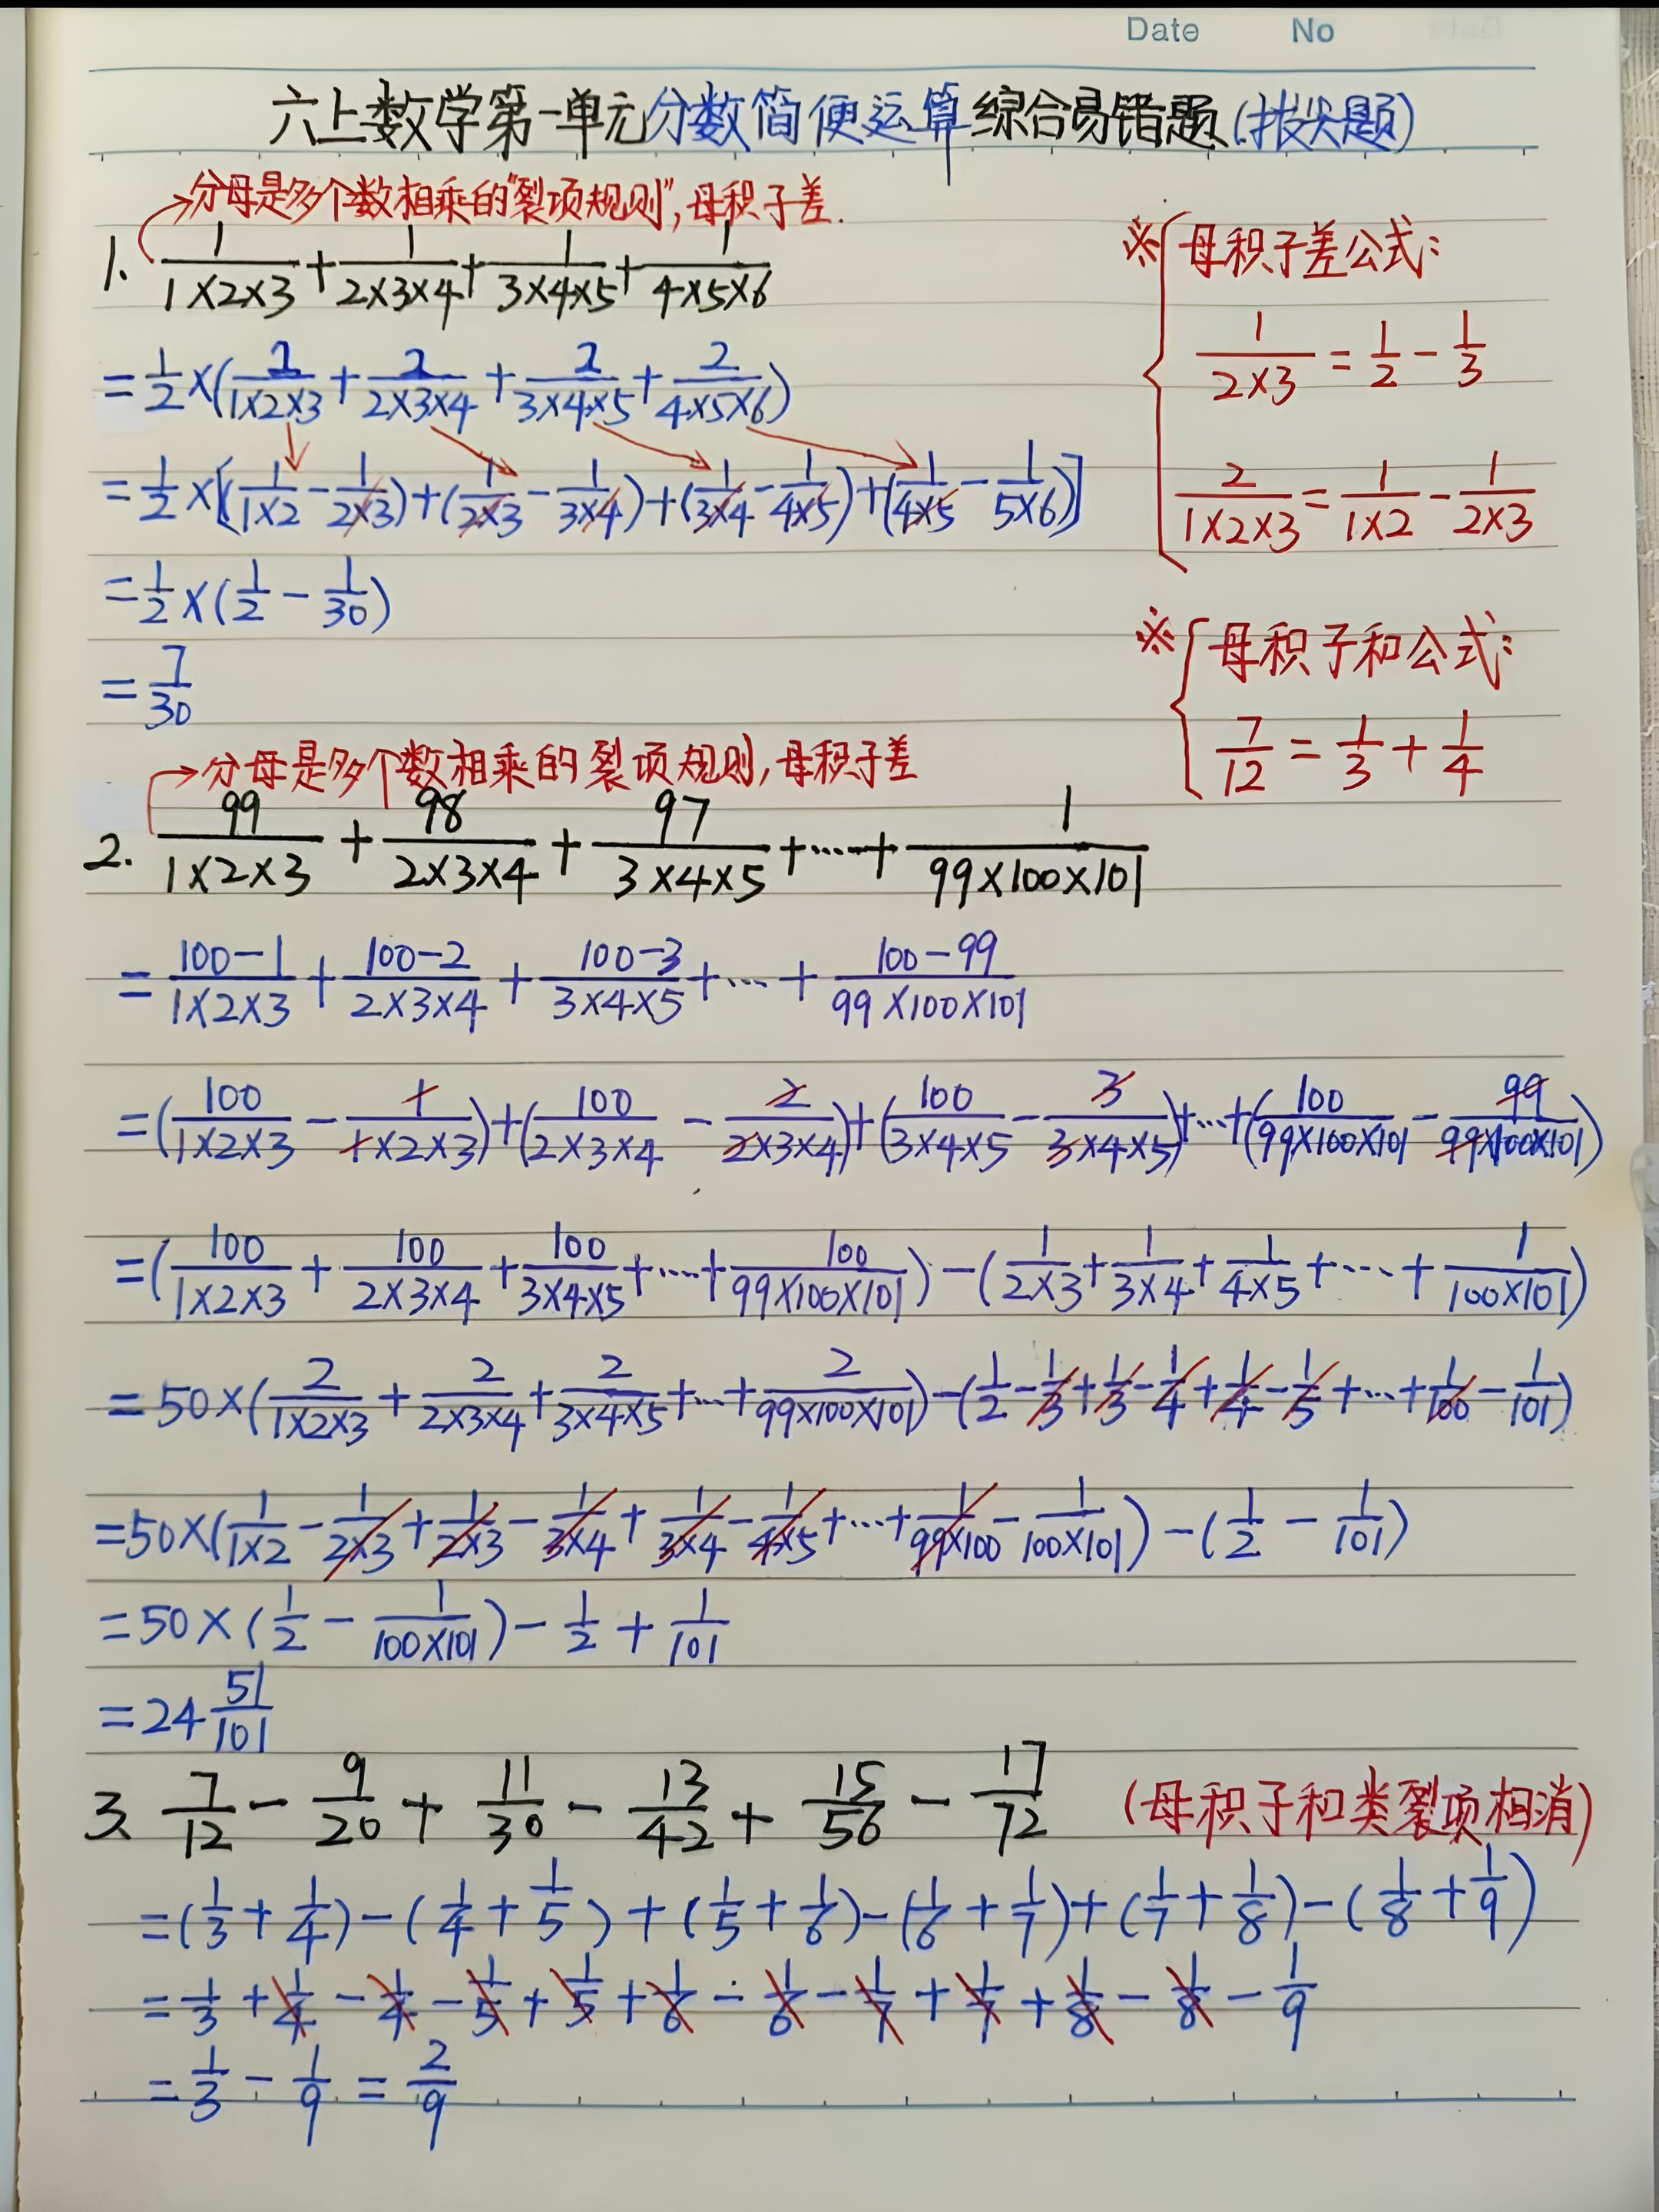 Date No
六上数学第一单元分数简便运算综合易错题(拔尖题)
分母是多个数相乘的"裂项规则",母积子差.
1. 1/(1×2×3) + 1/(2×3×4) + 1/(3×4×5) + 1/(4×5×6)
= 1/2 ×(2/(1×2×3) + 2/(2×3×4) + 2/(3×4×5) + 2/(4×5×6))
= 1/2 ×[(1/(1×2) - 1/(2×3)) + (1/(2×3) - 1/(3×4)) + (1/(3×4) - 1/(4×5)) + (1/(4×5) - 1/(5×6))]
= 1/2 ×(1/2 - 1/30)
= 7/30
※ 母积子差公式:
1/(2×3) = 1/2 - 1/3
2/(1×2×3) = 1/(1×2) - 1/(2×3)
※ 母积子和公式:
7/12 = 1/3 + 1/4
分母是多个数相乘的裂项规则,母积子差
2. 99/(1×2×3) + 98/(2×3×4) + 97/(3×4×5) +……+ 1/(99×100×101)
= (100-1)/(1×2×3) + (100-2)/(2×3×4) + (100-3)/(3×4×5) +…+ (100-99)/(99×100×101)
=(100/(1×2×3) - 1/(1×2×3)) + (100/(2×3×4) - 2/(2×3×4)) + (100/(3×4×5) - 3/(3×4×5)) +…+ (100/(99×100×101) - 99/(99×100×101))
=(100/(1×2×3) + 100/(2×3×4) + 100/(3×4×5) +……+ 100/(99×100×101)) - (1/(2×3) + 1/(3×4) + 1/(4×5) +……+ 1/(100×101))
= 50×(2/(1×2×3) + 2/(2×3×4) + 2/(3×4×5) +…+ 2/(99×100×101)) - (1/2 - 1/3 + 1/3 - 1/4 + 1/4 - 1/5 +…+ 1/100 - 1/101)
=50×(1/(1×2) - 1/(2×3) + 1/(2×3) - 1/(3×4) + 1/(3×4) - 1/(4×5) +…+ 1/(99×100) - 1/(100×101)) - (1/2 - 1/101)
=50×(1/2 - 1/(100×101)) - 1/2 + 1/101
=24 51/101
3. 7/12 - 9/20 + 11/30 - 13/42 + 15/56 - 17/72 (母积子和类裂项相消)
=(1/3 + 1/4) - (1/4 + 1/5) + (1/5 + 1/6) - (1/6 + 1/7) + (1/7 + 1/8) - (1/8 + 1/9)
= 1/3 + 1/4 - 1/4 - 1/5 + 1/5 + 1/6 - 1/6 - 1/7 + 1/7 + 1/8 - 1/8 - 1/9
= 1/3 - 1/9 = 2/9